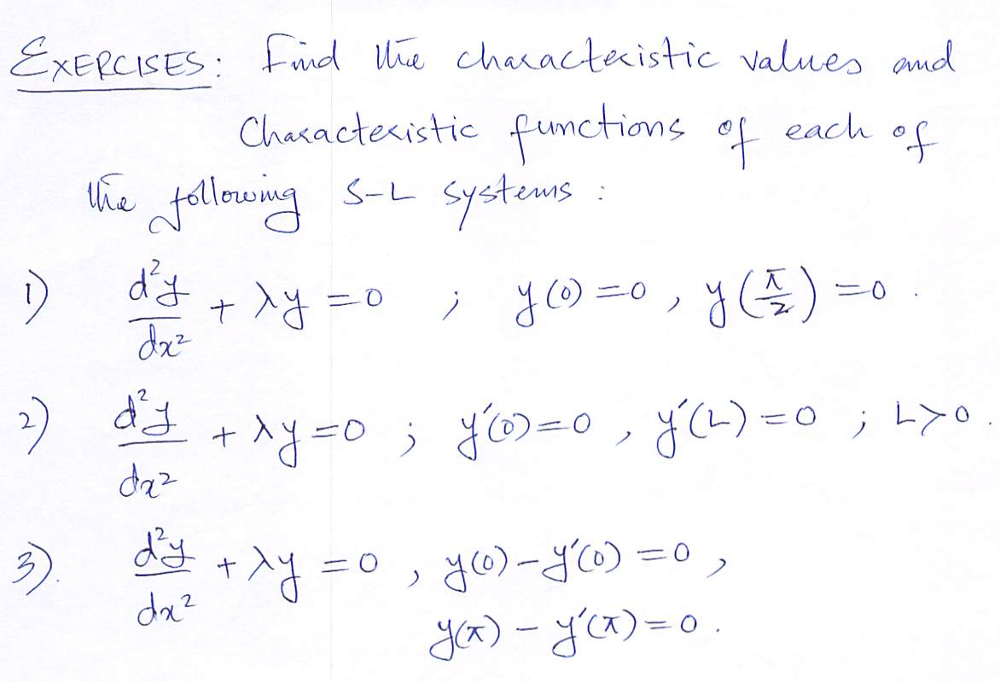 EXERCISES: Find the characteristic values and
Characteristic functions of each of
the following S-L systems :
1) d²y/dx² + λy = 0 ; y(0) = 0 , y(π/2) = 0 .
2) d²y/dx² + λy = 0 ; y'(0) = 0 , y'(L) = 0 ; L > 0 .
3). d²y/dx² + λy = 0 , y(0) - y'(0) = 0 ,
y(π) - y'(π) = 0 .